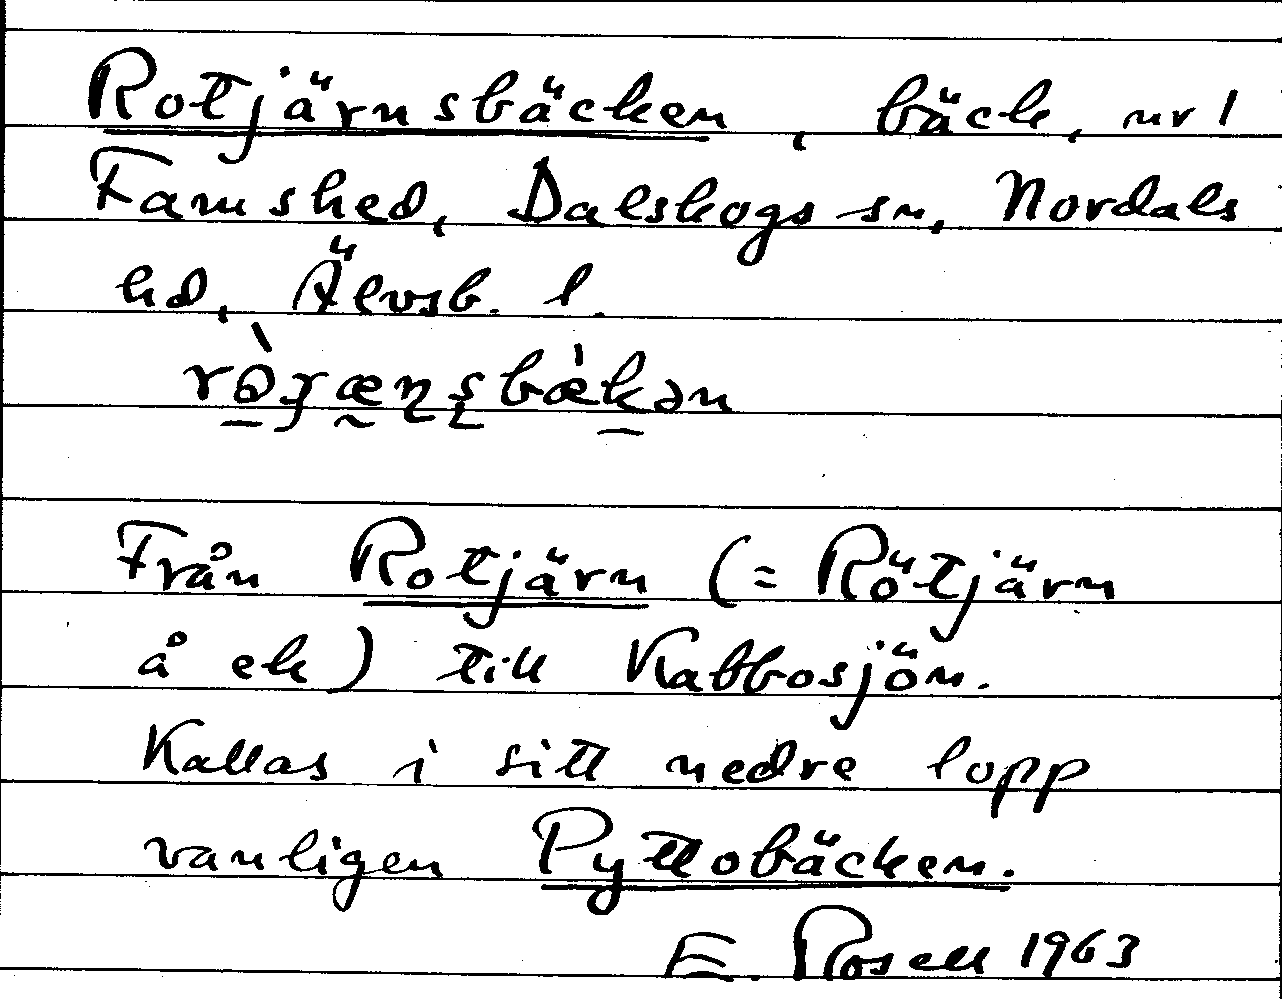 Rotjärnsbäcken, bäck, nr 1
Famshed, Dalskogs sn, Nordals
hd, Älvsb. l.
Från Rotjärn (= Rötjärn
å ek) till Kabbosjön.
Kallas i sitt nedre lopp
vanligen Pyttobäcken.
E. Rosell 1963